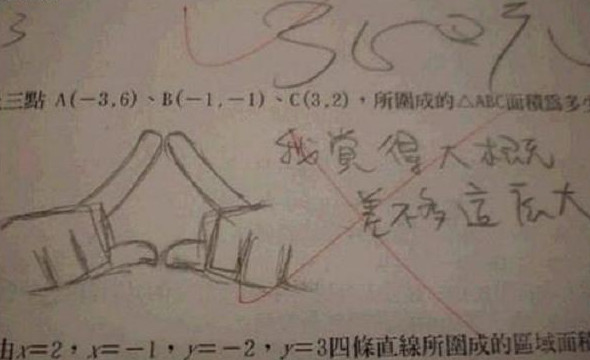 3
350元
三點 A(-3,6)、B(-1,-1)、C(3,2)，所圍成的△ABC面積為多少
我覺得大概
差不多這麼大
由x=2，x=-1，y=-2，y=3四條直線所圍成的區域面積